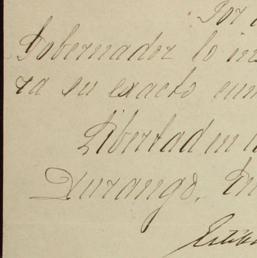 Por
Gobernador lo
ra su exacto cum
Libertad en l
Durango,